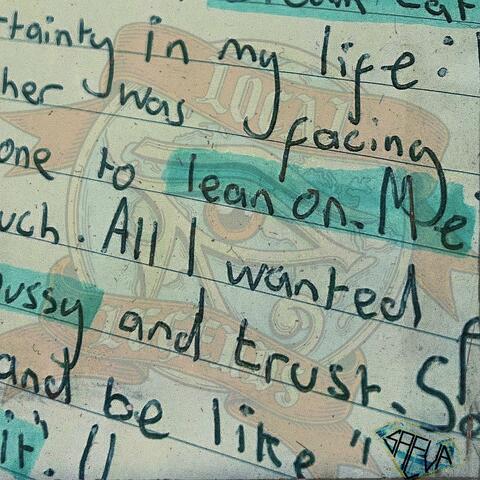 tainty in my life :
her was facing
one to lean on. Me
uch. All I wanted
ussy and trust. So
and be like "I
it". I
LOCAL